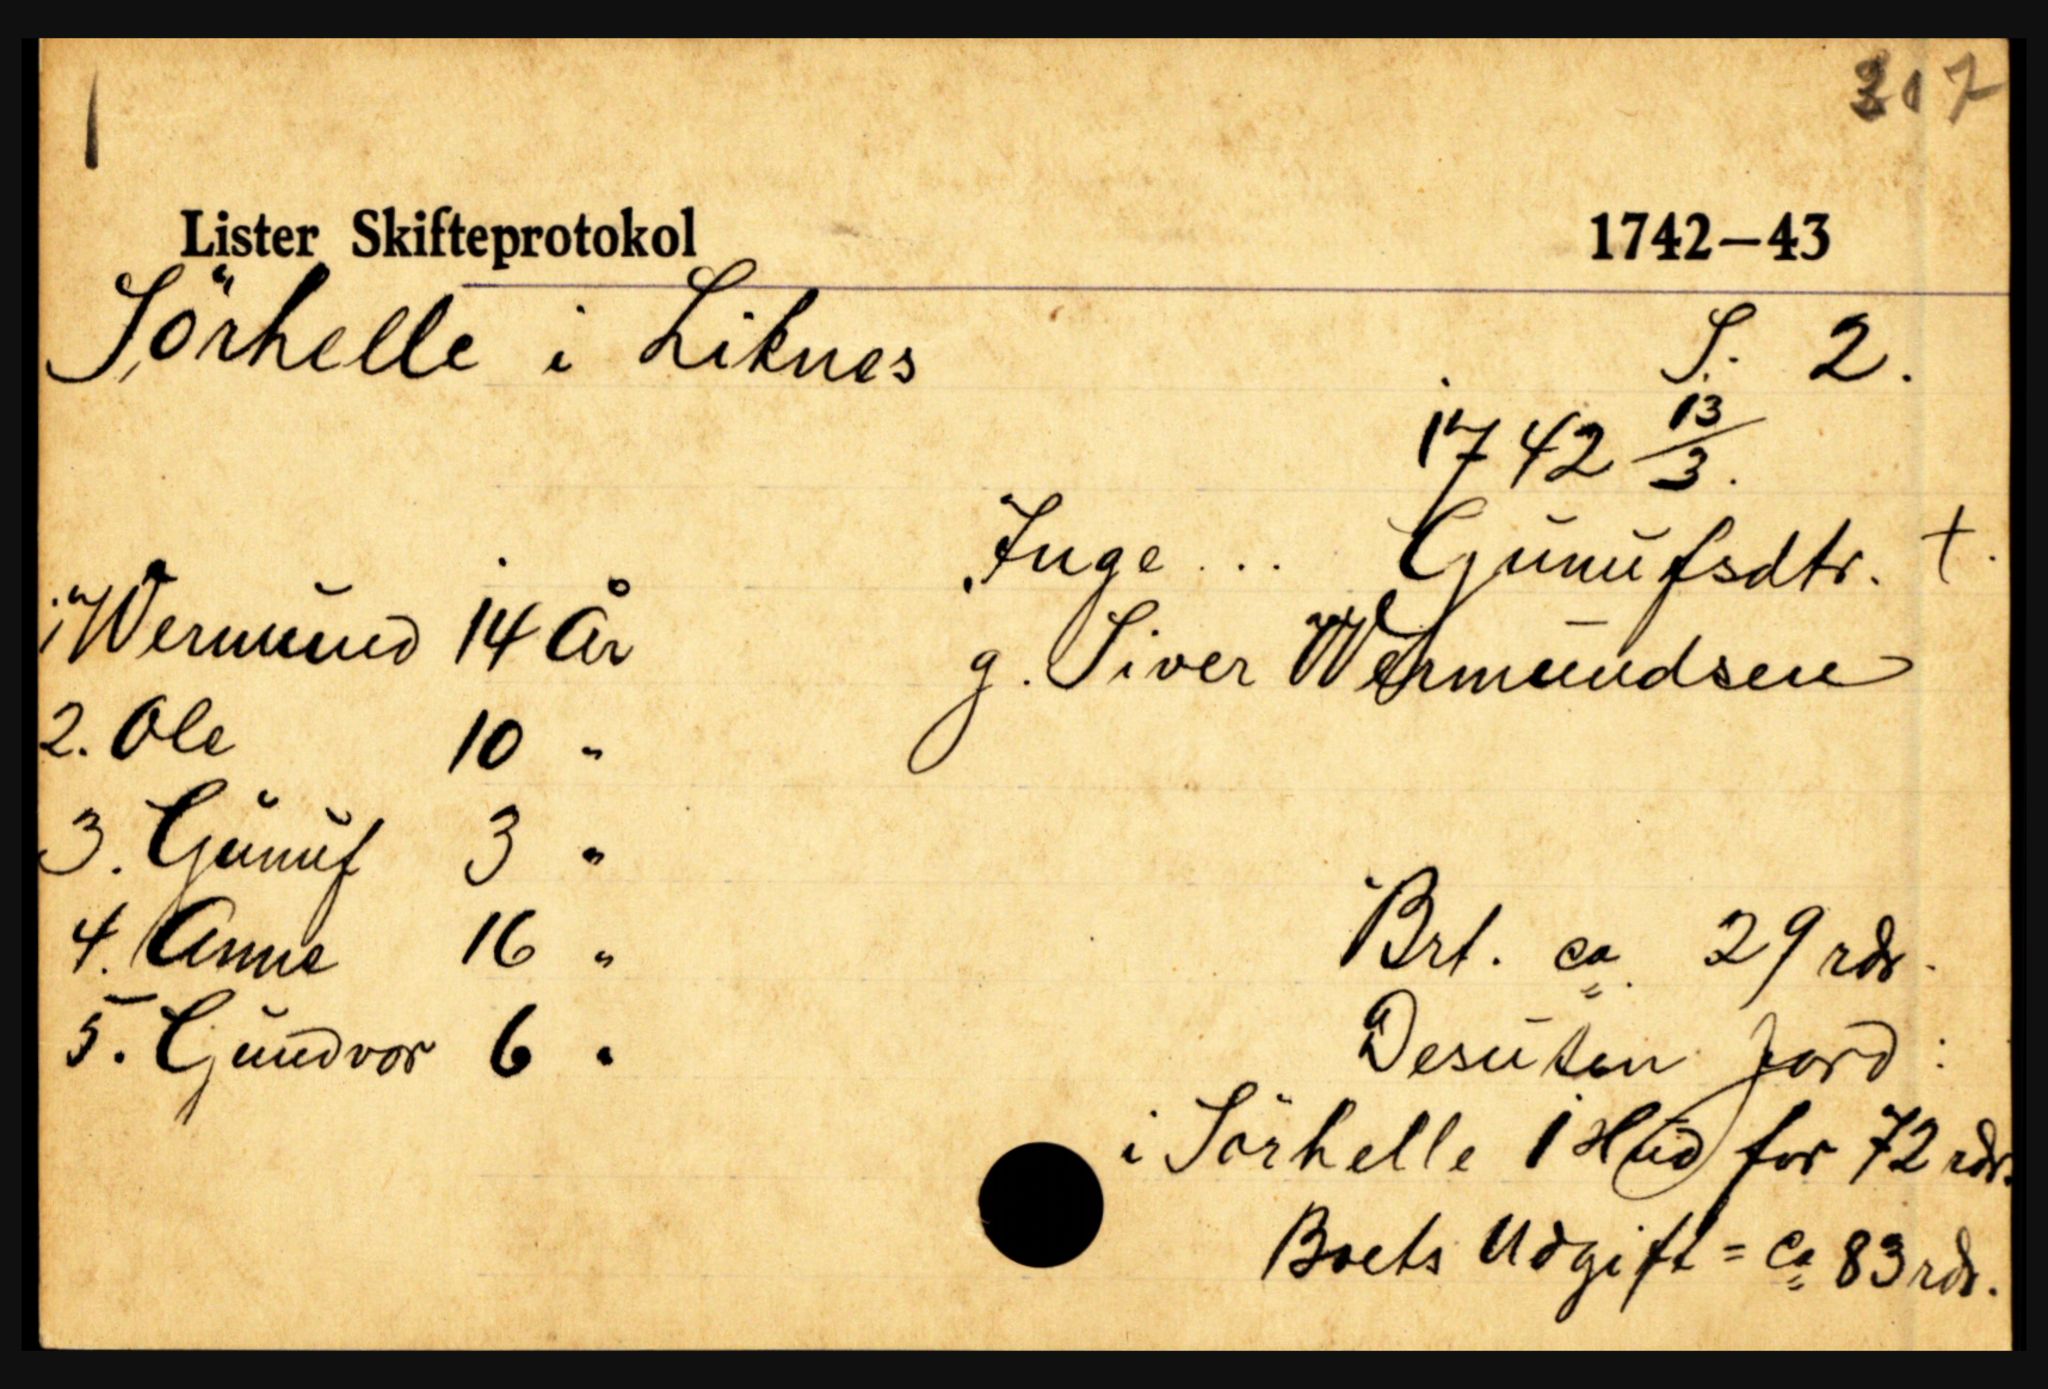 317
Lister Skifteprotokol 1742–43
Sörhelle i Liknes S. 2.
1742 13/3.
Inge ... Gunufsdtr. †.
g. Siver Wermundsen
1. Wermund 14 År
2. Ole 10 "
3. Gunuf 3 "
4. Anne 16 "
5. Gundvor 6 "
Brt. ca. 29 rdr.
Desuten Jord:
i Sörhelle 1 Hud for 72 rdr.
Boets Udgift = ca 83 rdr.